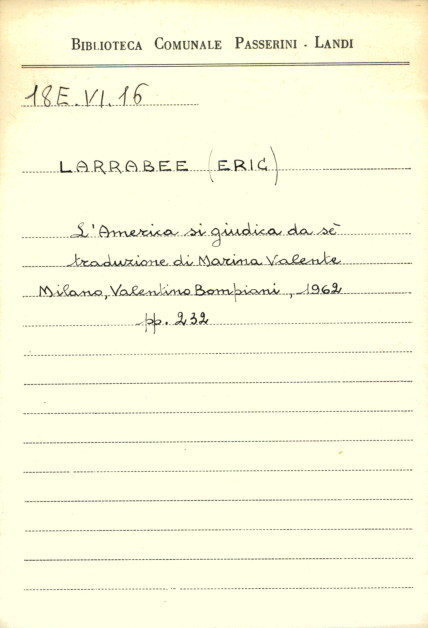 BIBLIOTECA COMUNALE PASSERINI - LANDI
18E.VI.16
LARRABEE (ERIC)
L'America si giudica da sè
traduzione di Marina Valente
Milano, Valentino Bompiani, 1962
pp. 232